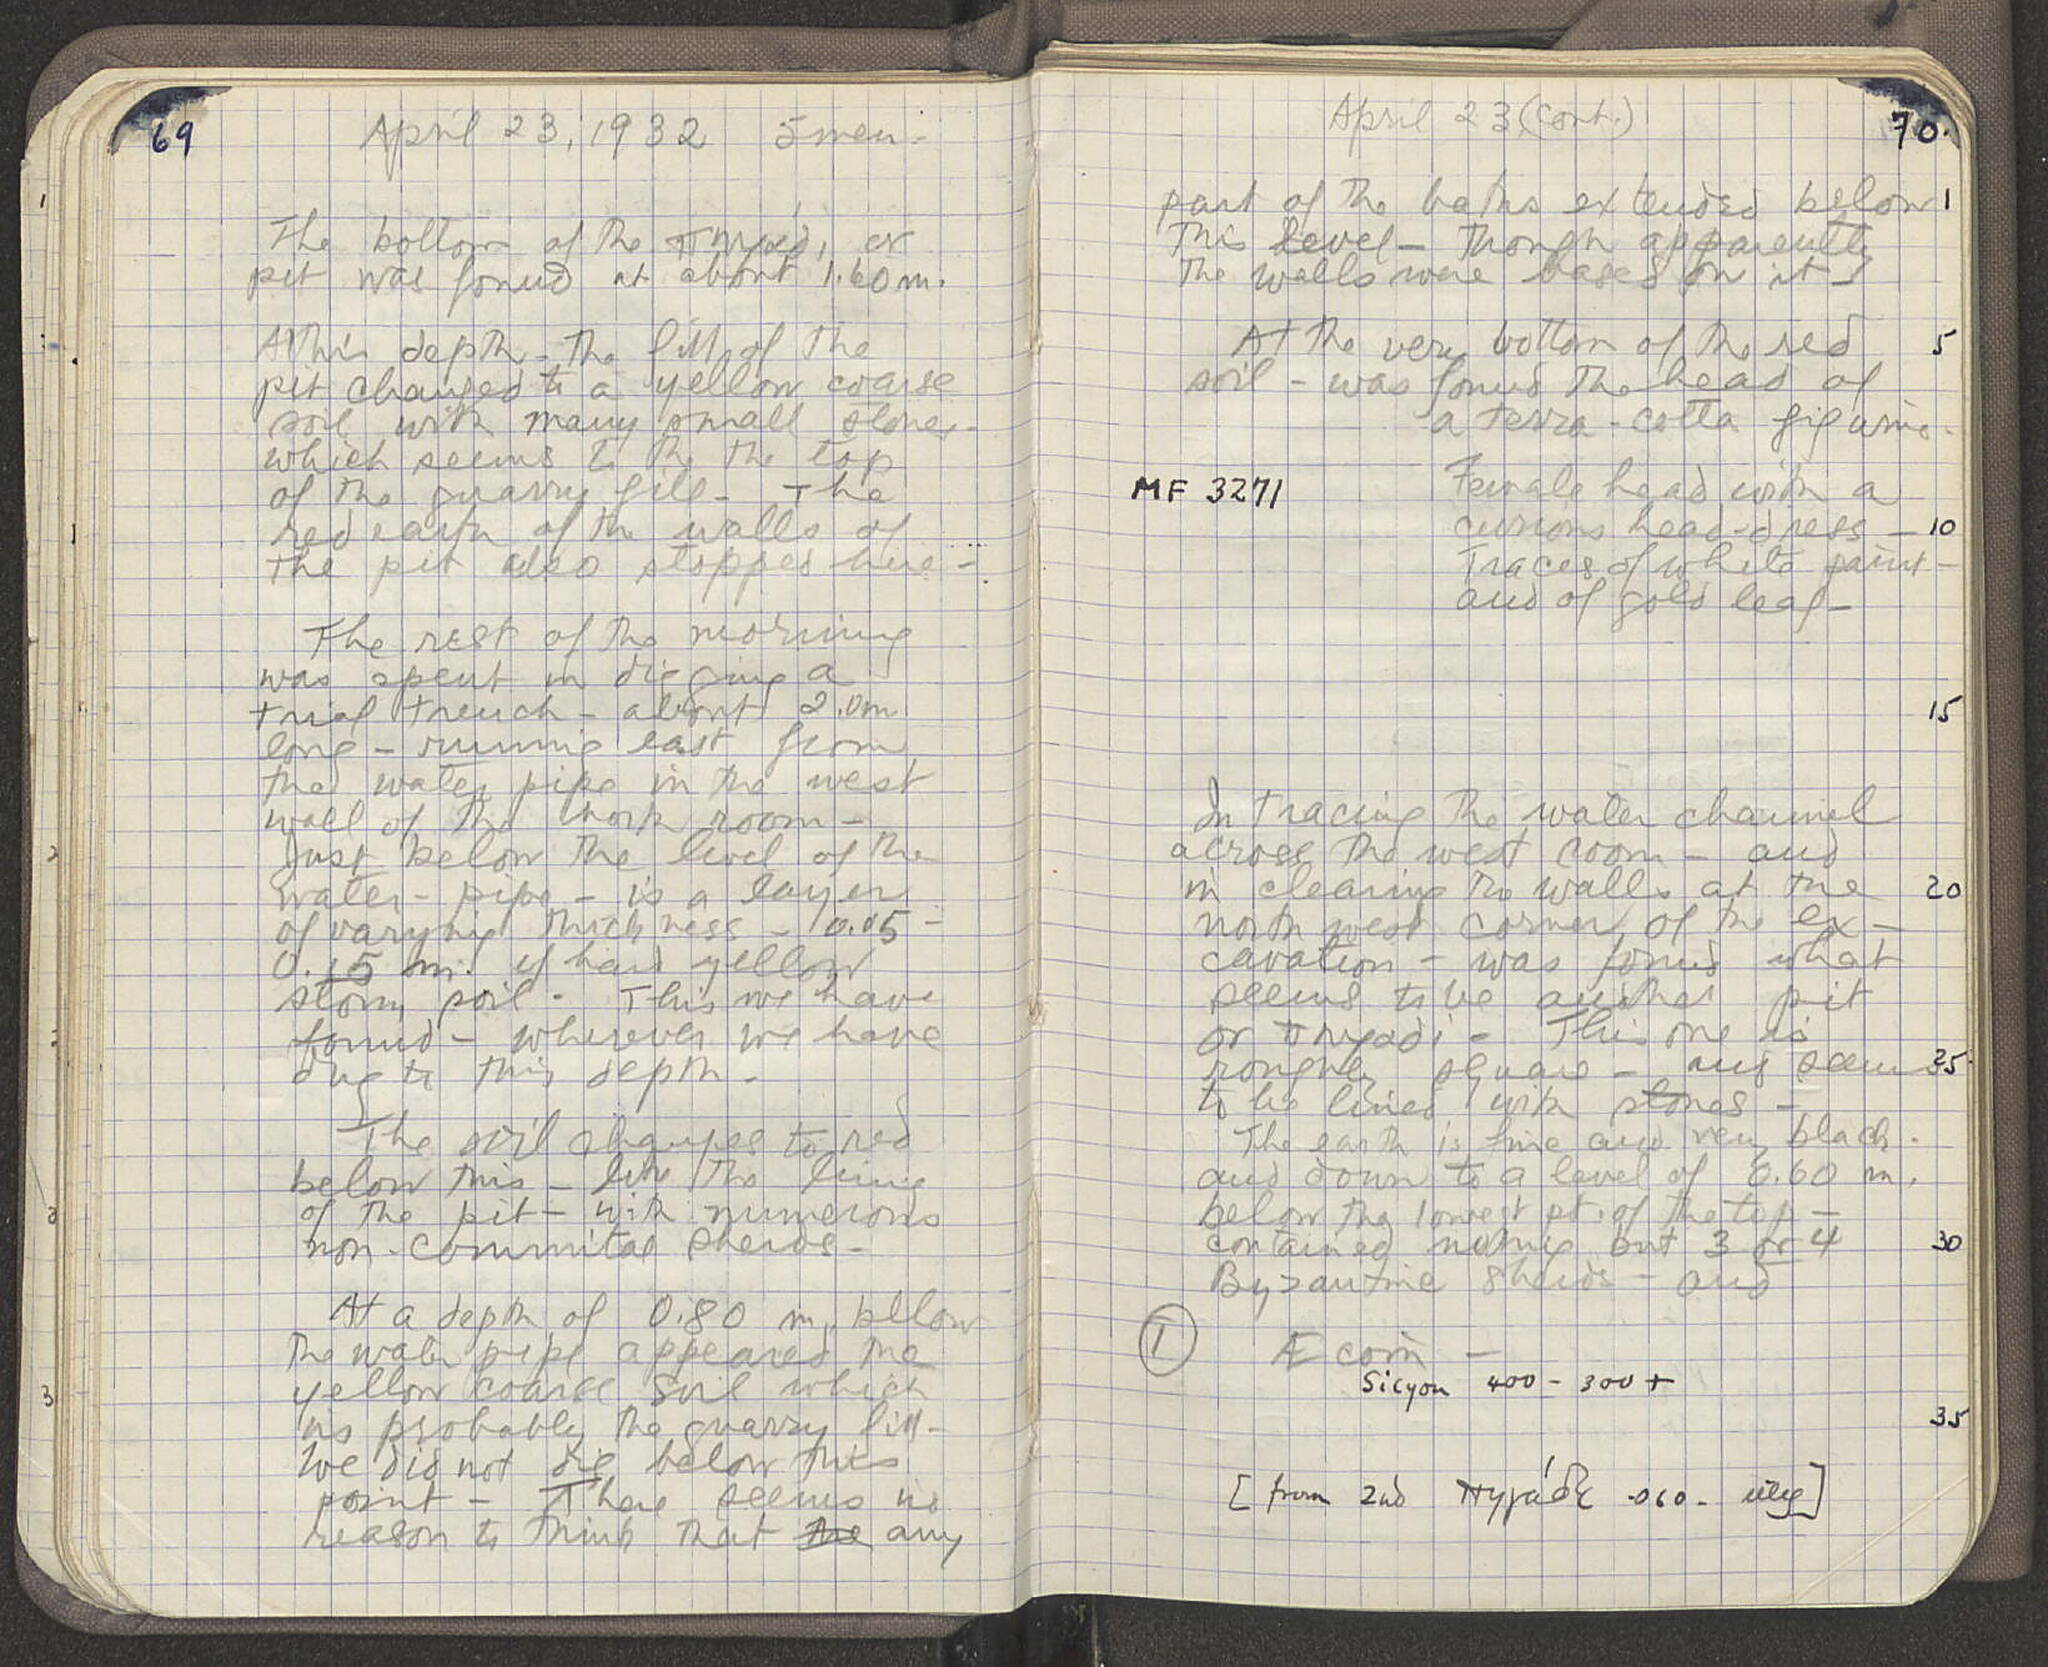 69
April 23, 1932 5 men -
The bottom of the πηγάδι or
pit was found at about 1.60 m.
At this depth - the fill of the
pit changed to a yellow coarse
soil with many small stones -
which seems to the the top
of the quarry fill - The
red earth of the walls of
the pit also stopped here -
The rest of the morning
was spent in digging a
trial trench - about 2.0 m
long - running east from
the water pipe in the west
wall of the north room -
Just below the level of the
water - pipe - is a layer
of varying thickness - 0.05 -
0.15 m. of hard yellow
stony soil - This we have
found - wherever we have
dug to this depth -
The soil changes to red
below this - like the lining
of the pit - with numerous
non-committal sherds -
At a depth of 0.80 m. below
the water pipe appeared the
yellow coarse soil which
is probably the quarry fill -
We did not dig below this
point - There seems no
reason to think that the any
April 23 (cont.)
70.
part of the baths extended below 1
this level - though apparently
the walls were based on it -
At the very bottom of the red 5
soil - was found the head of
a terra-cotta figurine.
MF 3271 Female head with a
curious head-dress - 10
Traces of white paint -
and of gold leaf -
15
In tracing the water channel
across the west room - and
in clearing the walls at the 20
north west corner of the ex -
cavation - was found what
seems to be another pit
or πηγάδι - This one is
roughly square - and seems 25
to be lined with stones -
The earth is fine and very black -
and down to a level of 0.60 m.
below the lowest pt. of the top -
contained nothing but 3 or 4 30
Byzantine sherds - and
① Æ coin -
Sicyon 400 - 300 +
35
[from 2nd πηγάδι -060-]